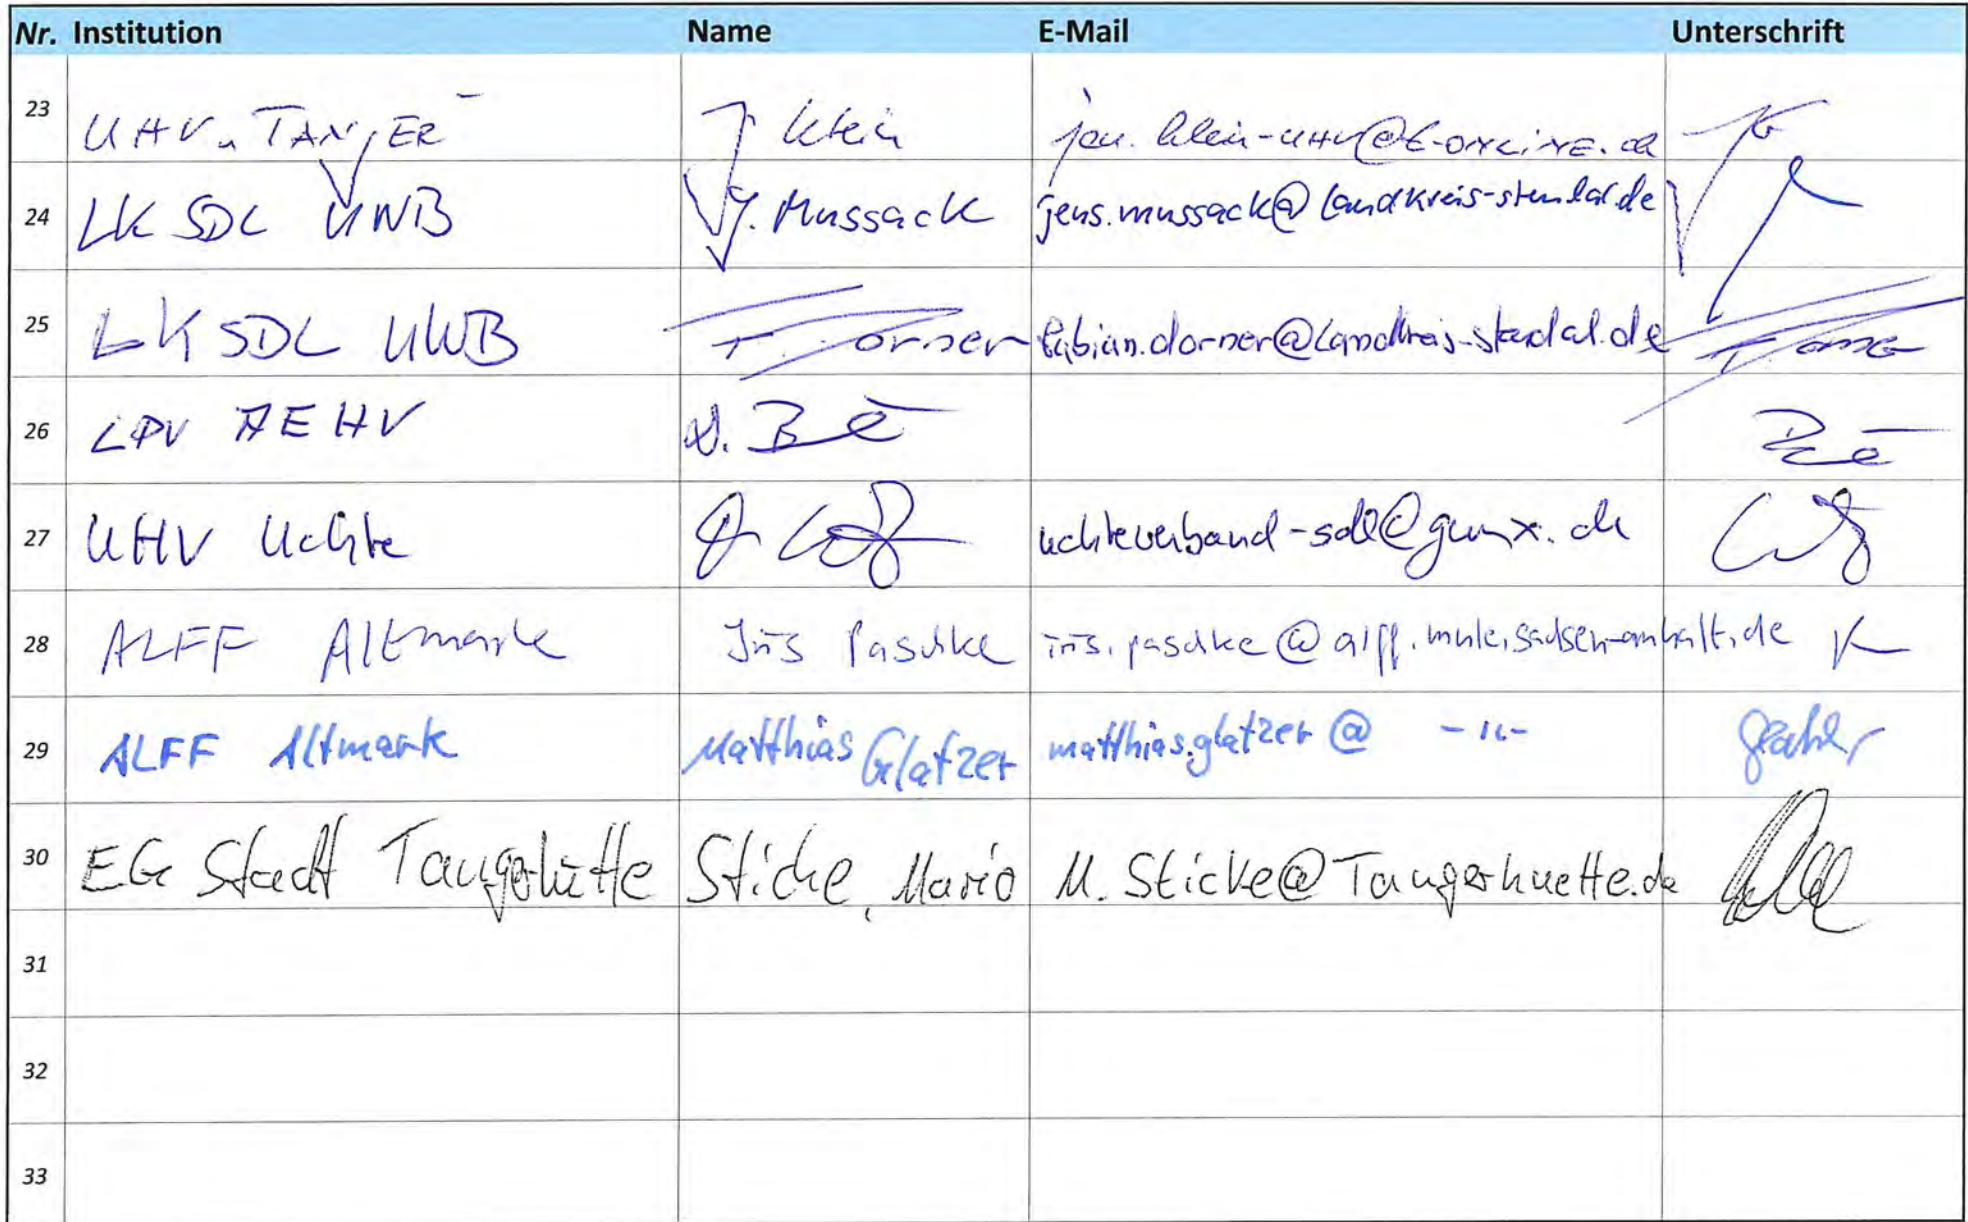 Nr. Institution Name E-Mail Unterschrift
23 UHV "TANGER" J Klein jen.klein-UHV@t-online.de
24 LK SDL UNB J. Mussack jens.mussack@landkreis-stendal.de
25 LK SDL UWB F. Dorner fabian.dorner@landkreis-stendal.de
26 LPV AEHV
27 UHV Uchte uchteverband-sdl@gmx.de
28 ALFF Altmark Iris Paschke iris.paschke@alff.mule.sachsen-anhalt.de
29 ALFF Altmark Matthias Glatzer matthias.glatzer@ -"-
30 EG Stadt Tangerhütte Sticke, Mario M.Sticke@Tangerhuette.de
31
32
33